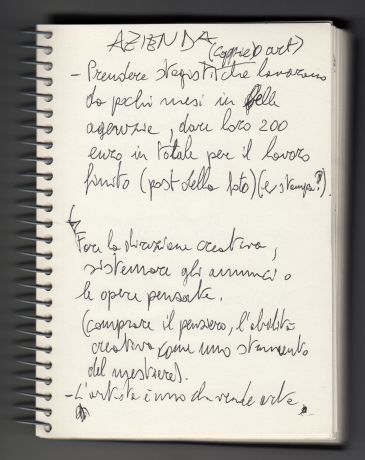 AZIENDA
(coppie) art)
- Prendere stagisti che lavorano
da pochi mesi in belle
agenzie, dare loro 200
euro in totale per il lavoro
finito (post della foto) (e stampa?).
Fare la direzione creativa,
sistemare gli annunci o
le opere pensate.
(comprare il pensiero, l'abilità
creativa come uno strumento
del mestiere).
- L'artista è uno che vende arte